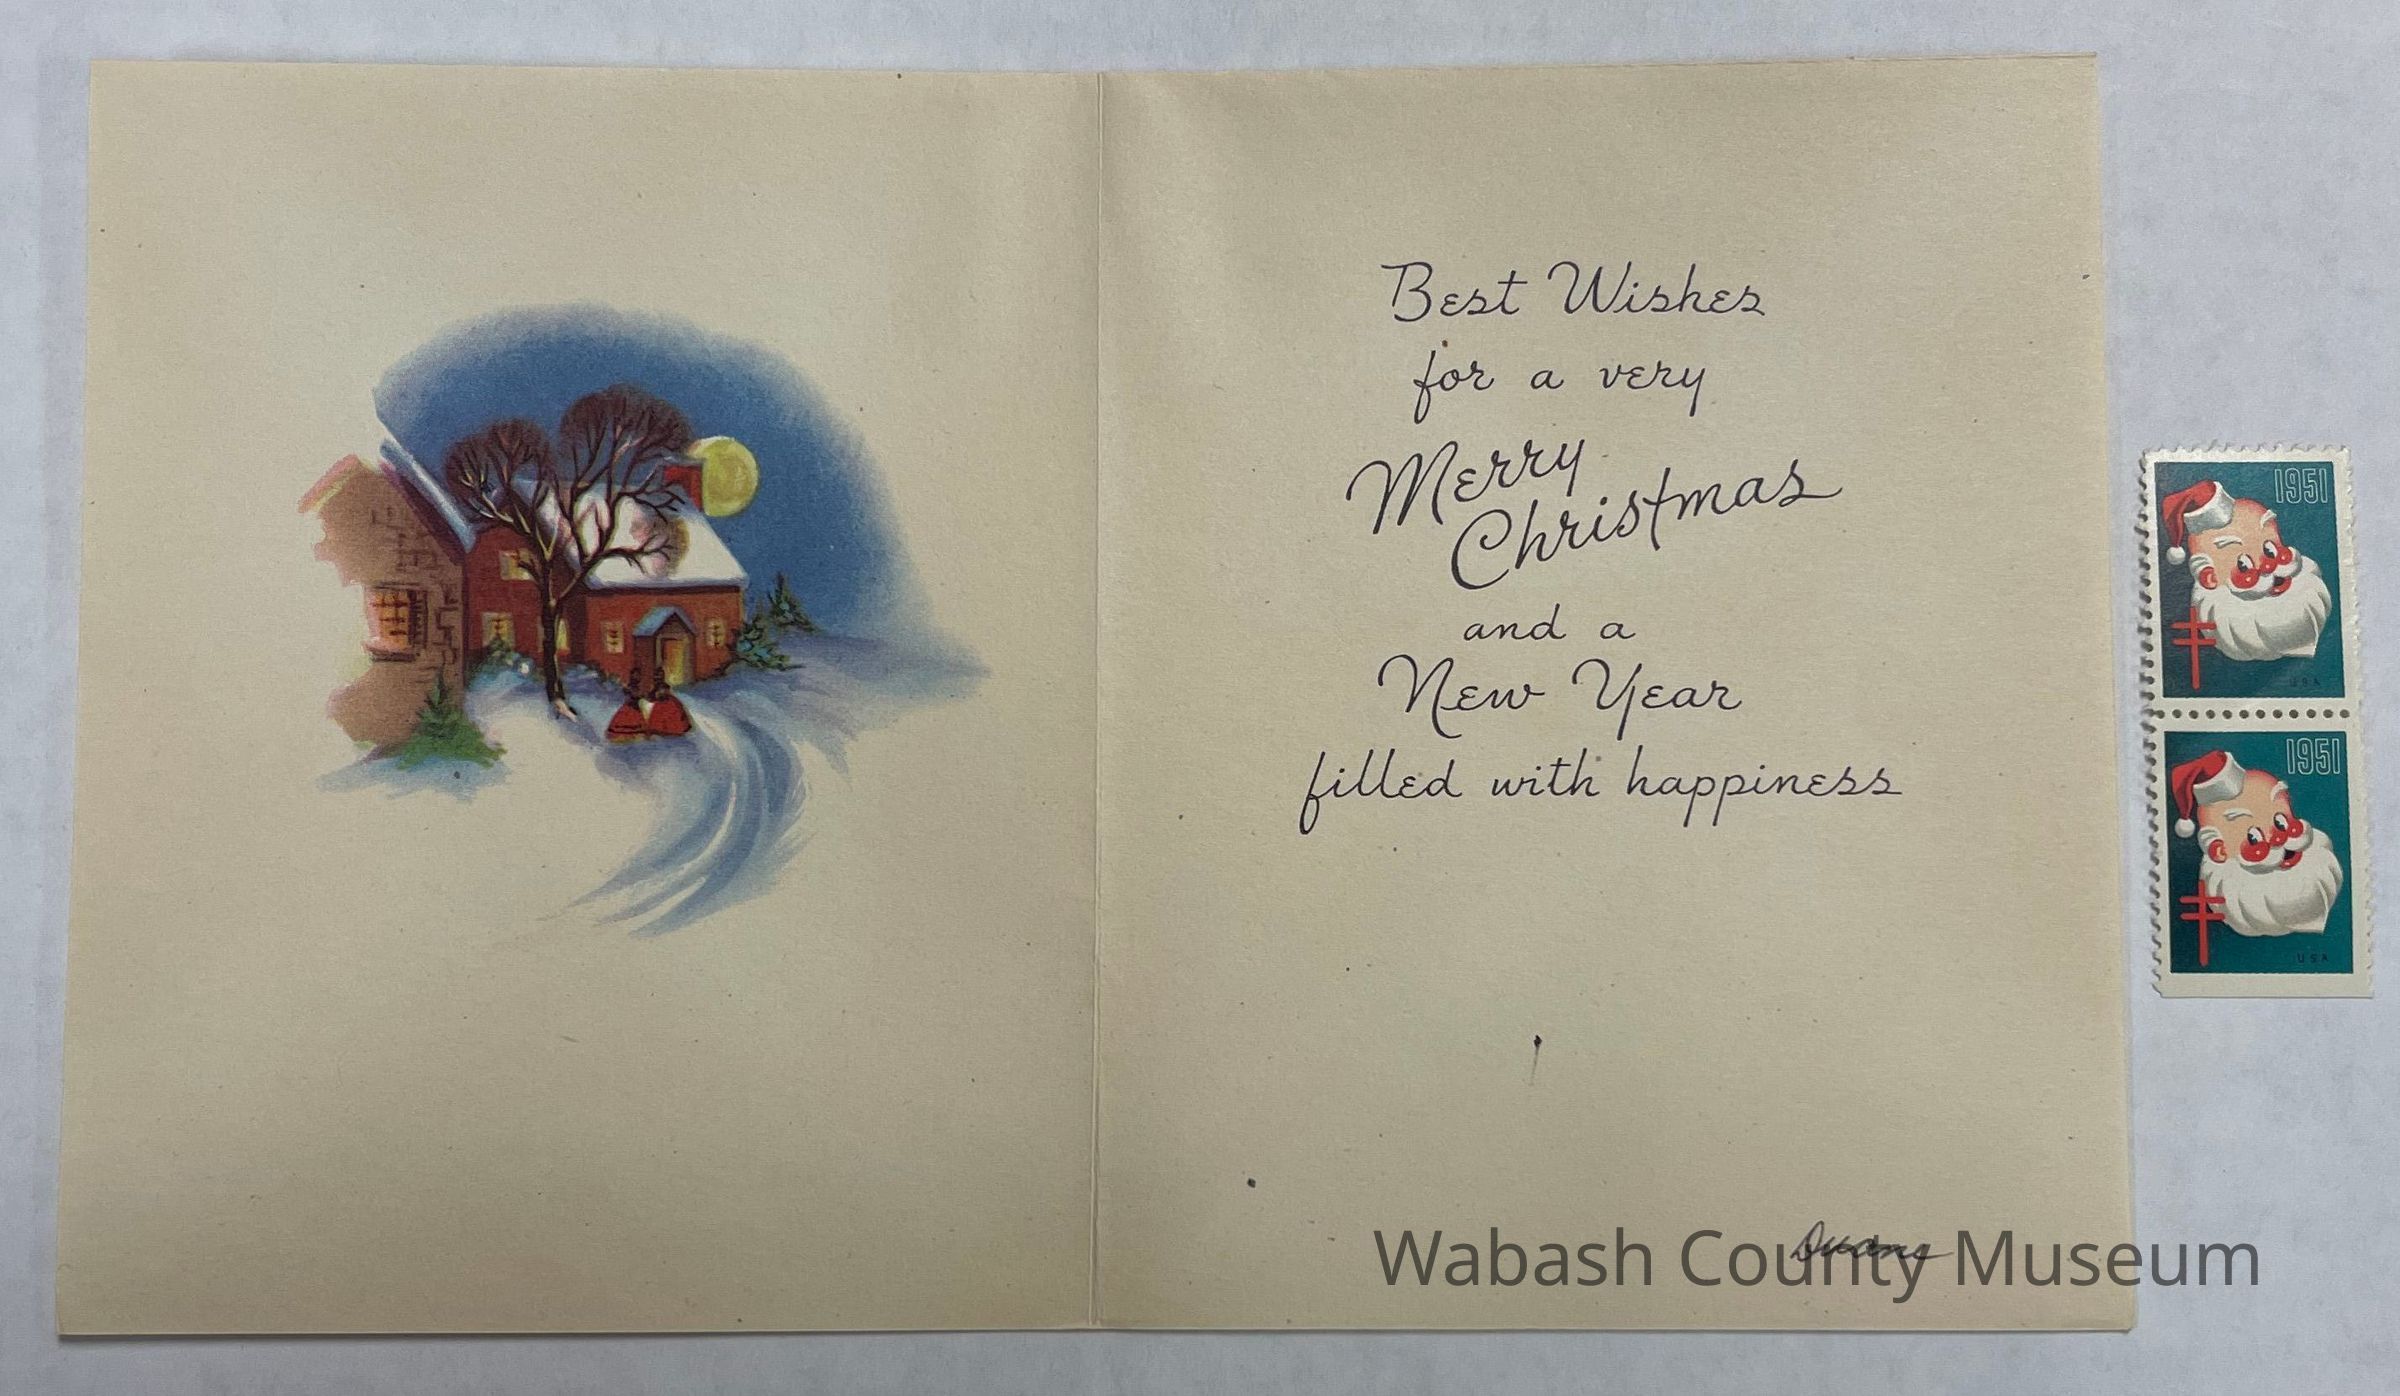 Best Wishes
for a very
Merry
Christmas
and a
New Year
filled with happiness
Duane
Wabash County Museum
1951
USA
1951
USA